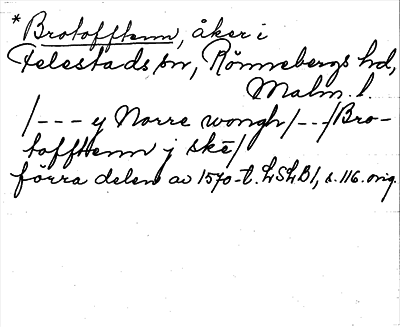 * Brotofftenn, åker i
Felestads sn, Rönnebergs hd,
Malm. l.
/--- y Norre wongh/---/Bro-
tofftenn j ske/
förra delen av 1570-t. LSLB1, s. 116. orig.